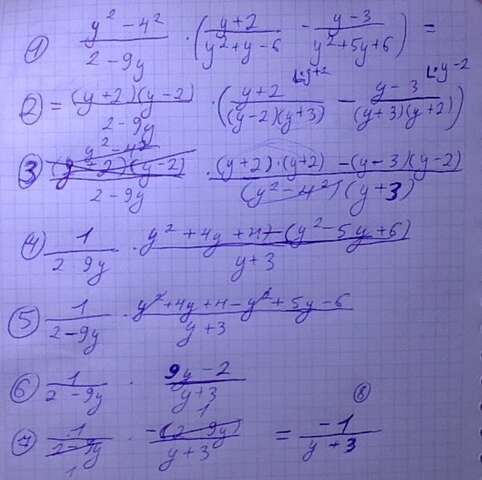 ① (y² - 4²)/(2 - 9y) · ( (y+2)/(y²+y-6) - (y-3)/(y²+5y+6) ) =
② = ((y+2)(y-2))/(2 - 9y) · ( (y+2)/((y-2)(y+3)) ⌞·y+2 - (y-3)/((y+3)(y+2)) ⌞·y-2 )
③ (y² - 4²)/(2 - 9y) · ((y+2)·(y+2) - (y-3)(y-2))/((y² - 4²)(y+3))
④ 1/(2 - 9y) · (y² + 4y + 4 - (y² - 5y + 6))/(y+3)
⑤ 1/(2 - 9y) · (y² + 4y + 4 - y² + 5y - 6)/(y+3)
⑥ 1/(2 - 9y) · (9y - 2)/(y+3)
⑦ 1/(2 - 9y) 1 · (-(2 - 9y) 1)/(y+3) = ⑧ (-1)/(y+3)